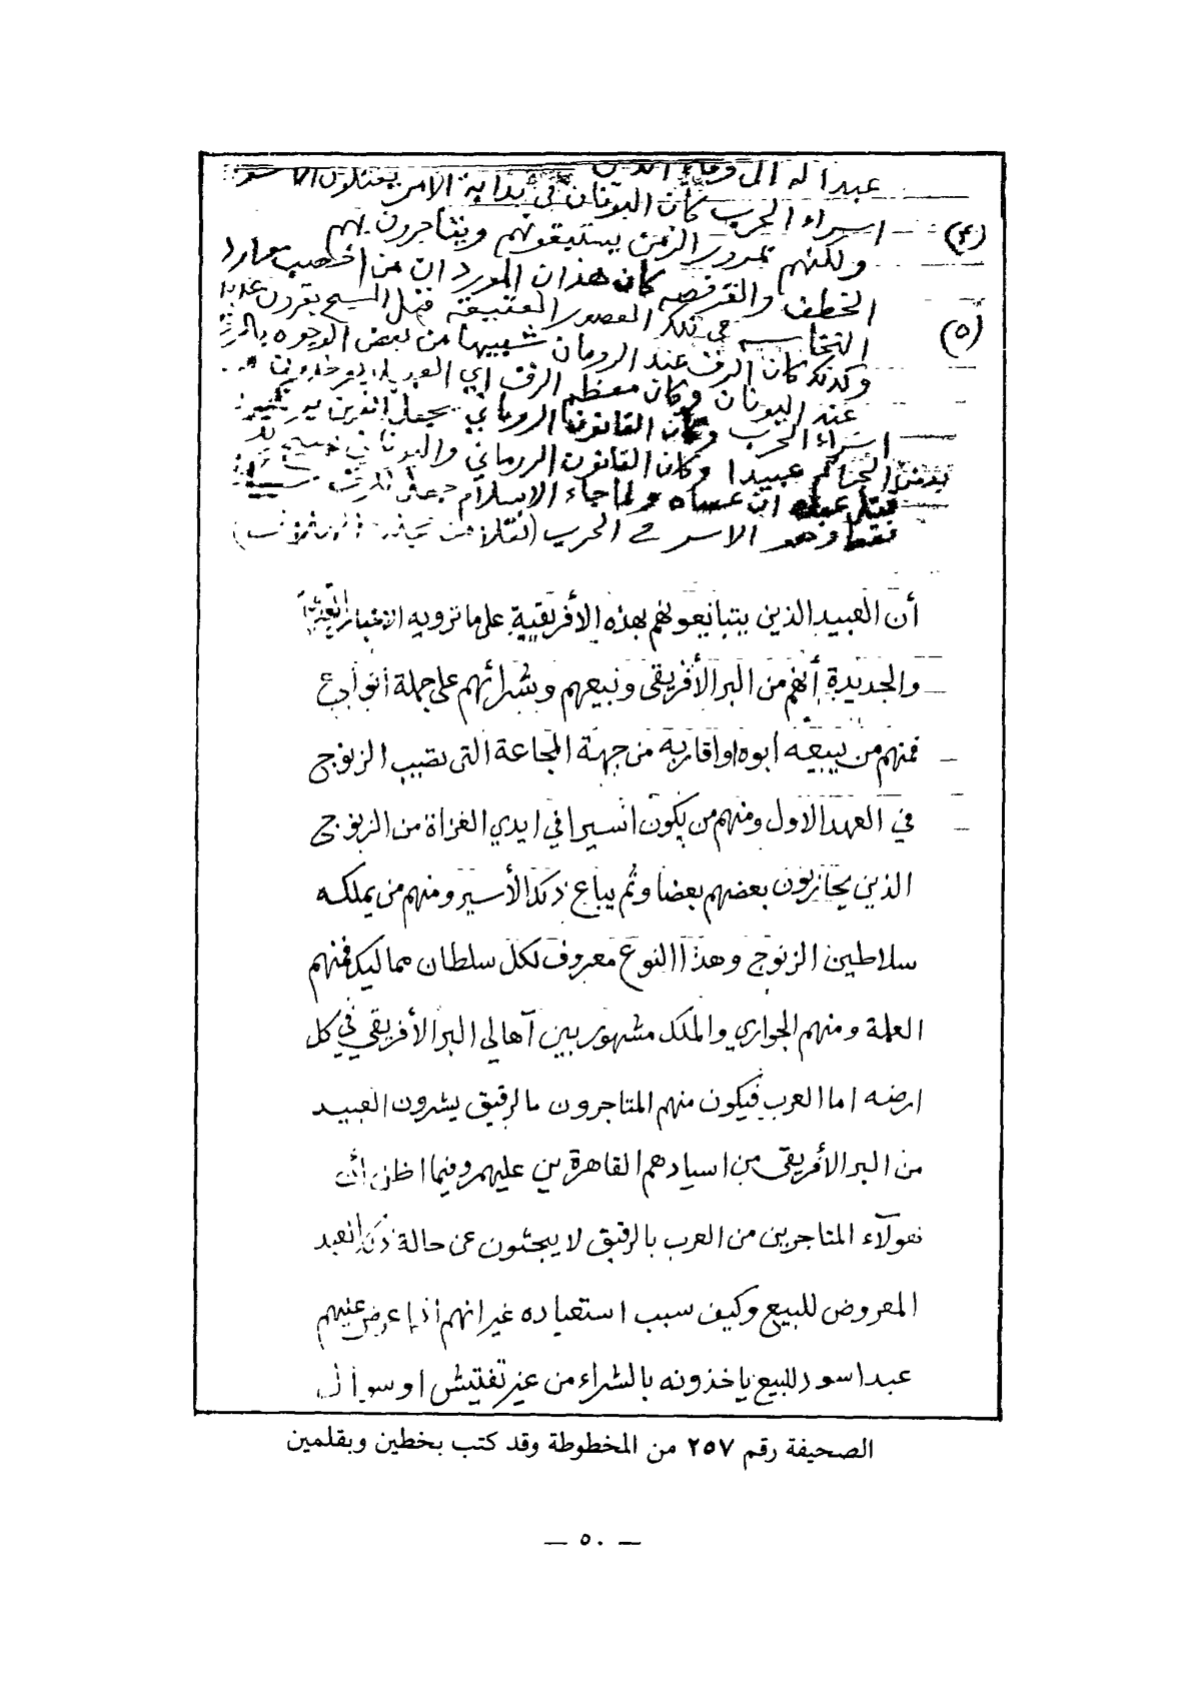 عبدا له الى وفاء الدين
(٤) اسراء الحرب كان اليونان في بداية الامر يقتلون
ولكنهم بمرور الزمن يستبقونهم ويتاجرون بهم
(٥) الخطف والقرصنه كان هذان الموردان من اخصب موارد
النخاسه في تلك العصور العتيقة قبل المسيح بقرون
وكذلك كان الرق عند الرومان شبيها من بعض الوجوه بالرق
عند اليونان وكان معظم الرق اي العبيد يؤخذون
اسراء الحرب وكان القانون الروماني يجعل
بعض الجرائم عبيدا وكان القانون الروماني واليوناني
بقتل عبده ان عساه ولما جاء الاسلام جعل للرق سببا
فقط وهو الاسر في الحرب (نقلا من
أن العبيد الذين يتبايعونهم بهذه الأفريقية على ما ترويه الاخبار القديمة
والجديدة أنهم من البر الأفريقي ونبيعهم وشرائهم على جملة أنواع
فمنهم من يبيعه ابوه او اقاربه من جهة المجاعة التى تصيب الزنوج
في العهد الاول ومنهم من يكون اسيرا في ايدي الغزاة من الزنوج
الذين يحاربون بعضهم بعضا وثم يباع ذلك الأسير ومنهم من يملكه
سلاطين الزنوج وهذا النوع معروف لكل سلطان مماليك فمنهم
الغلمة ومنهم الجواري والملك مشهور بين آهالي البر الأفريقي في كل
ارضه اما العرب فيكون منهم المتاجرون بالرقيق يشرون العبيد
من البر الأفريقى من اسيادهم القاهرين عليهم وفيما اظن أن
هولآء المتاجرين من العرب بالرقيق لا يبحثون عن حالة ذلك العبد
المعروض للبيع وكيف سبب استعباده غير انهم اذا عرض عليهم
عبدا سود للبيع ياخذونه بالشراء من غير تفتيش او سوآل
الصحيفة رقم ٢٥٧ من المخطوطة وقد كتب بخطين وبقلمين
— ٥٠ —